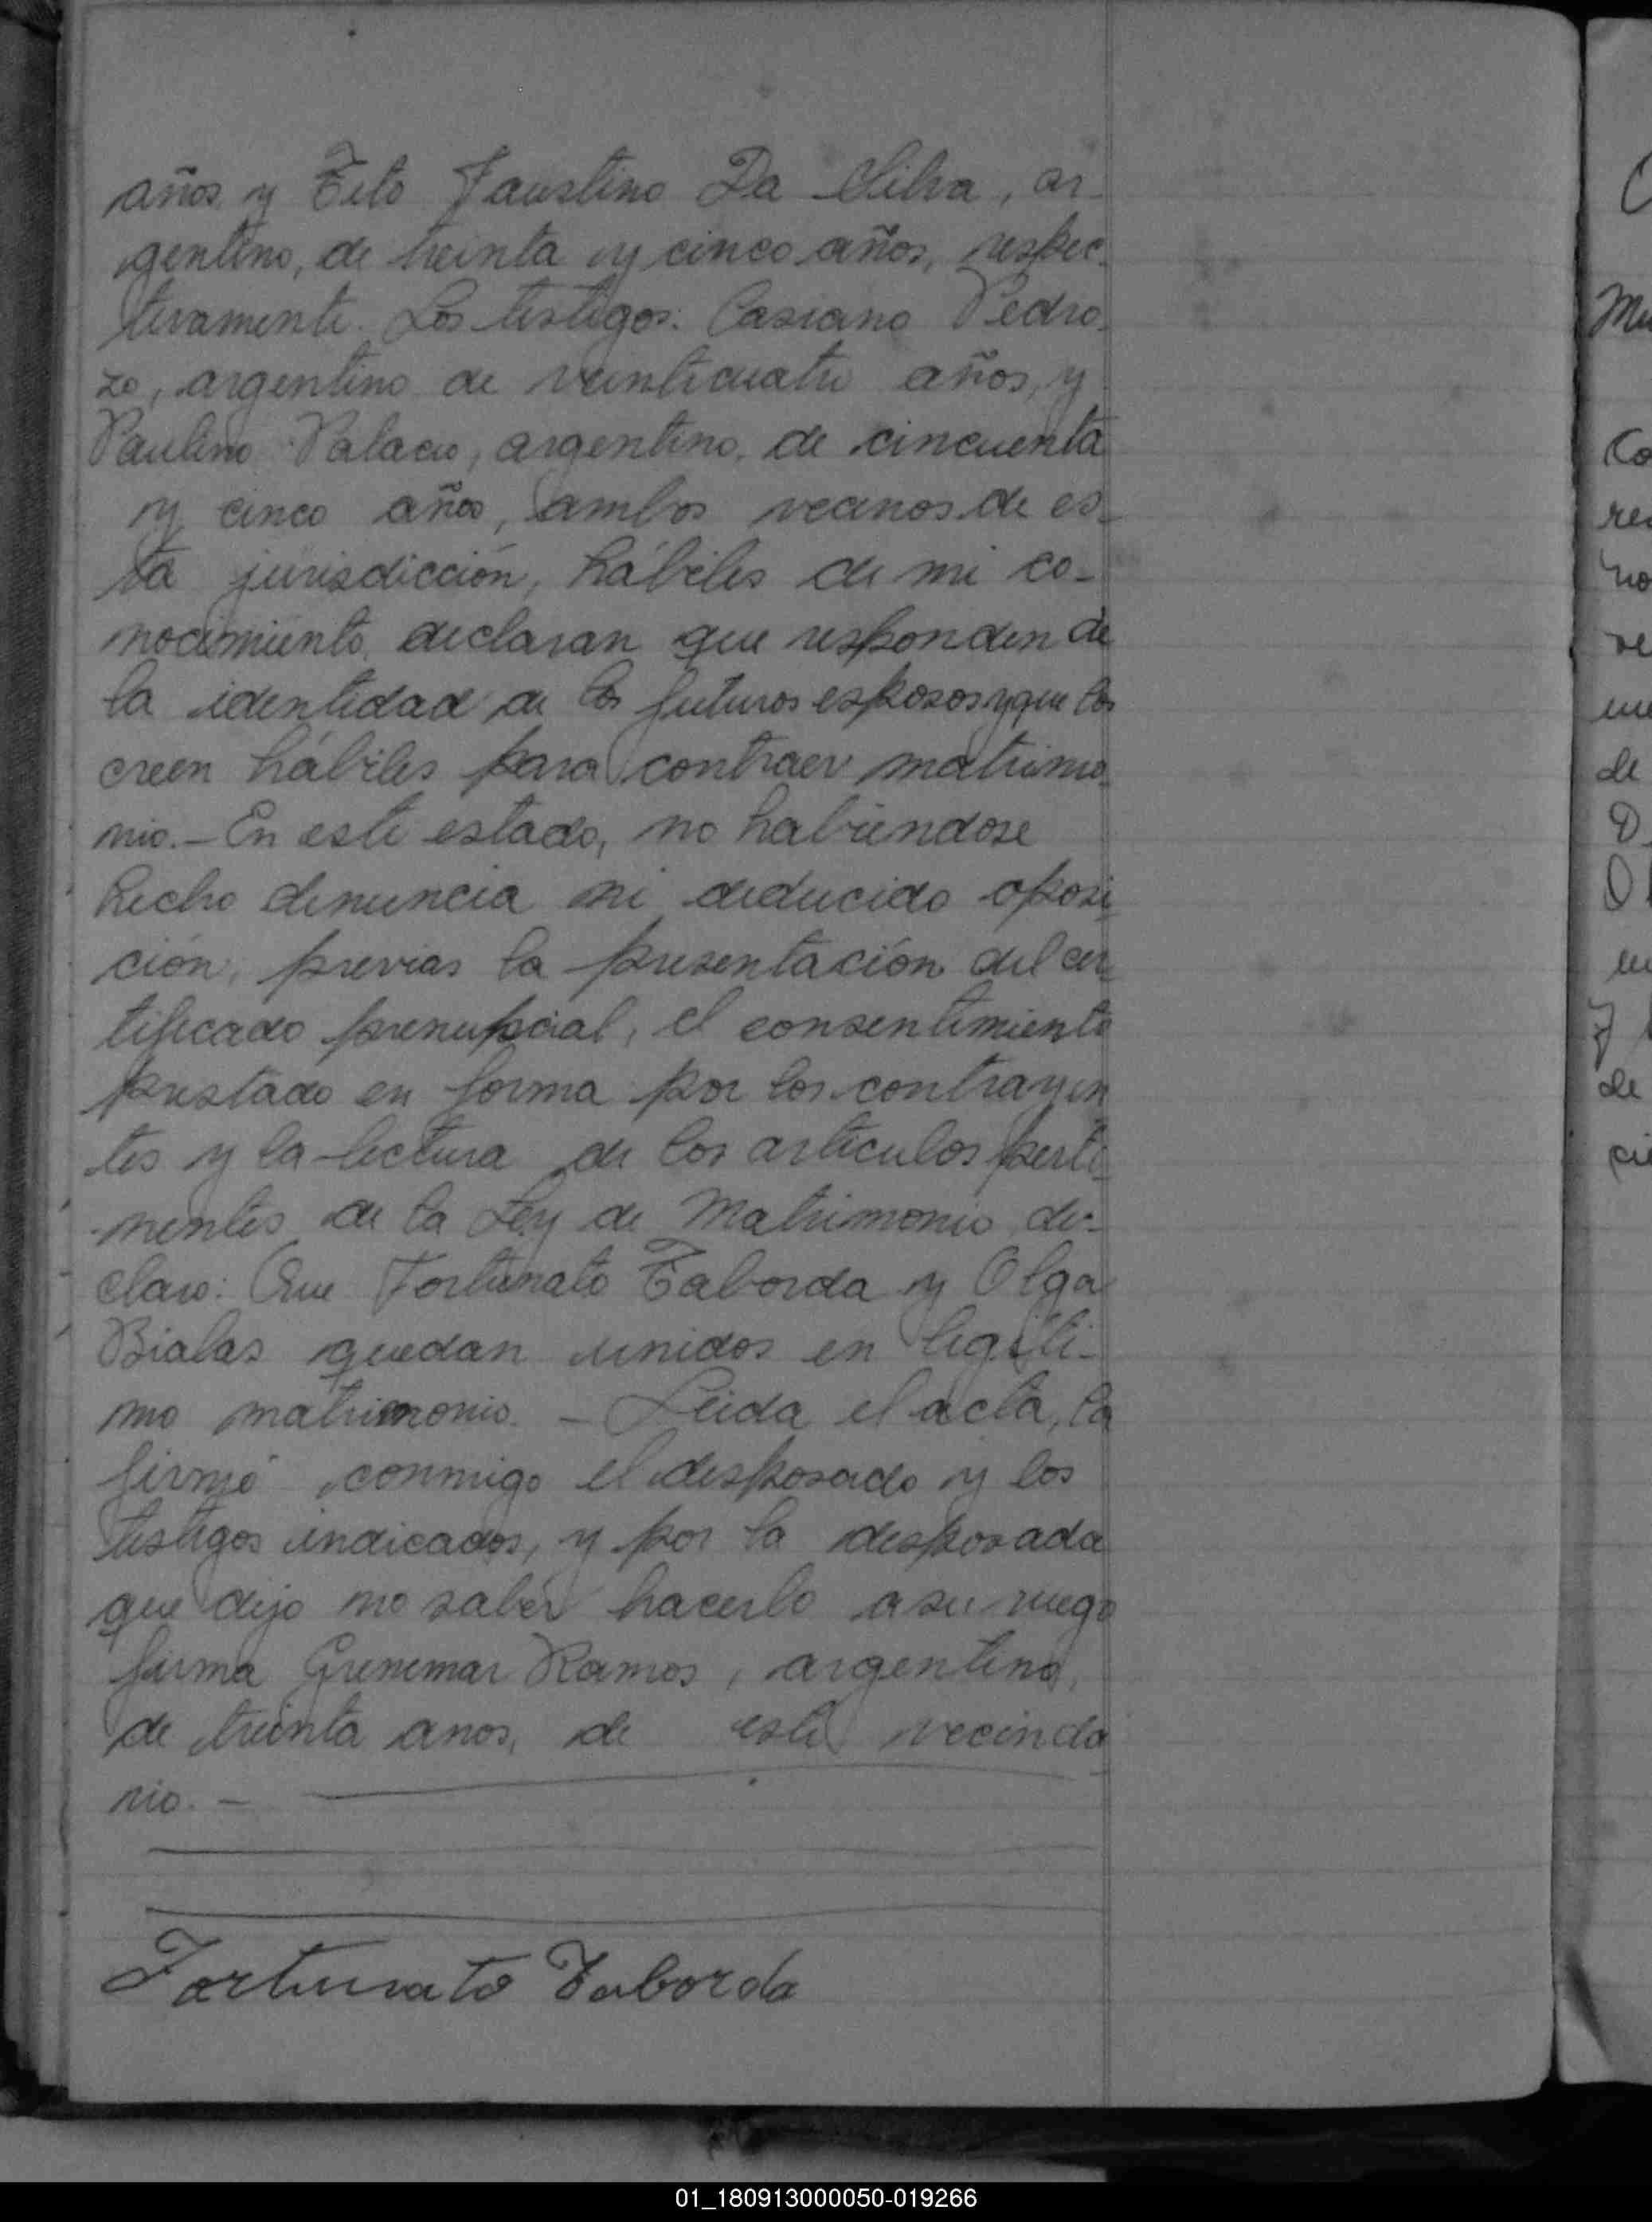 años y Tito Faustino Da Silva, ar-
gentino, de treinta y cinco años, respec-
tivamente. Los testigos: Casiano Pedro-
zo, argentino de veinticuatro años, y
Paulino Palacio, argentino, de cincuenta
y cinco años, ambos vecinos de es-
ta jurisdicción, hábiles de mi co-
nocimiento, declaran que responden de
la identidad de los futuros esposos y que los
creen hábiles para contraer matrimo-
nio.- En este estado, no habiendose
hecho denuncia ni deducido oposi-
ción, previas la presentación del cer-
tificado prenupcial, el consentimiento
prestado en forma por los contrayen
tes y la lectura de los artículos perti-
nentes de la Ley de Matrimonio de-
claro: Que Fortunato Taborda y Olga
Bialas quedan unidos en legíti-
mo matrimonio. - Leida el acta, la
firmó conmigo el desposado y los
testigos indicados, y por la desposada
que dijo no saber hacerlo a su ruego
firma Ramos, argentino,
de treinta anos, de este vecinda-
rio. -
Fortunato Taborda
Co
de
de
01_180913000050-019266